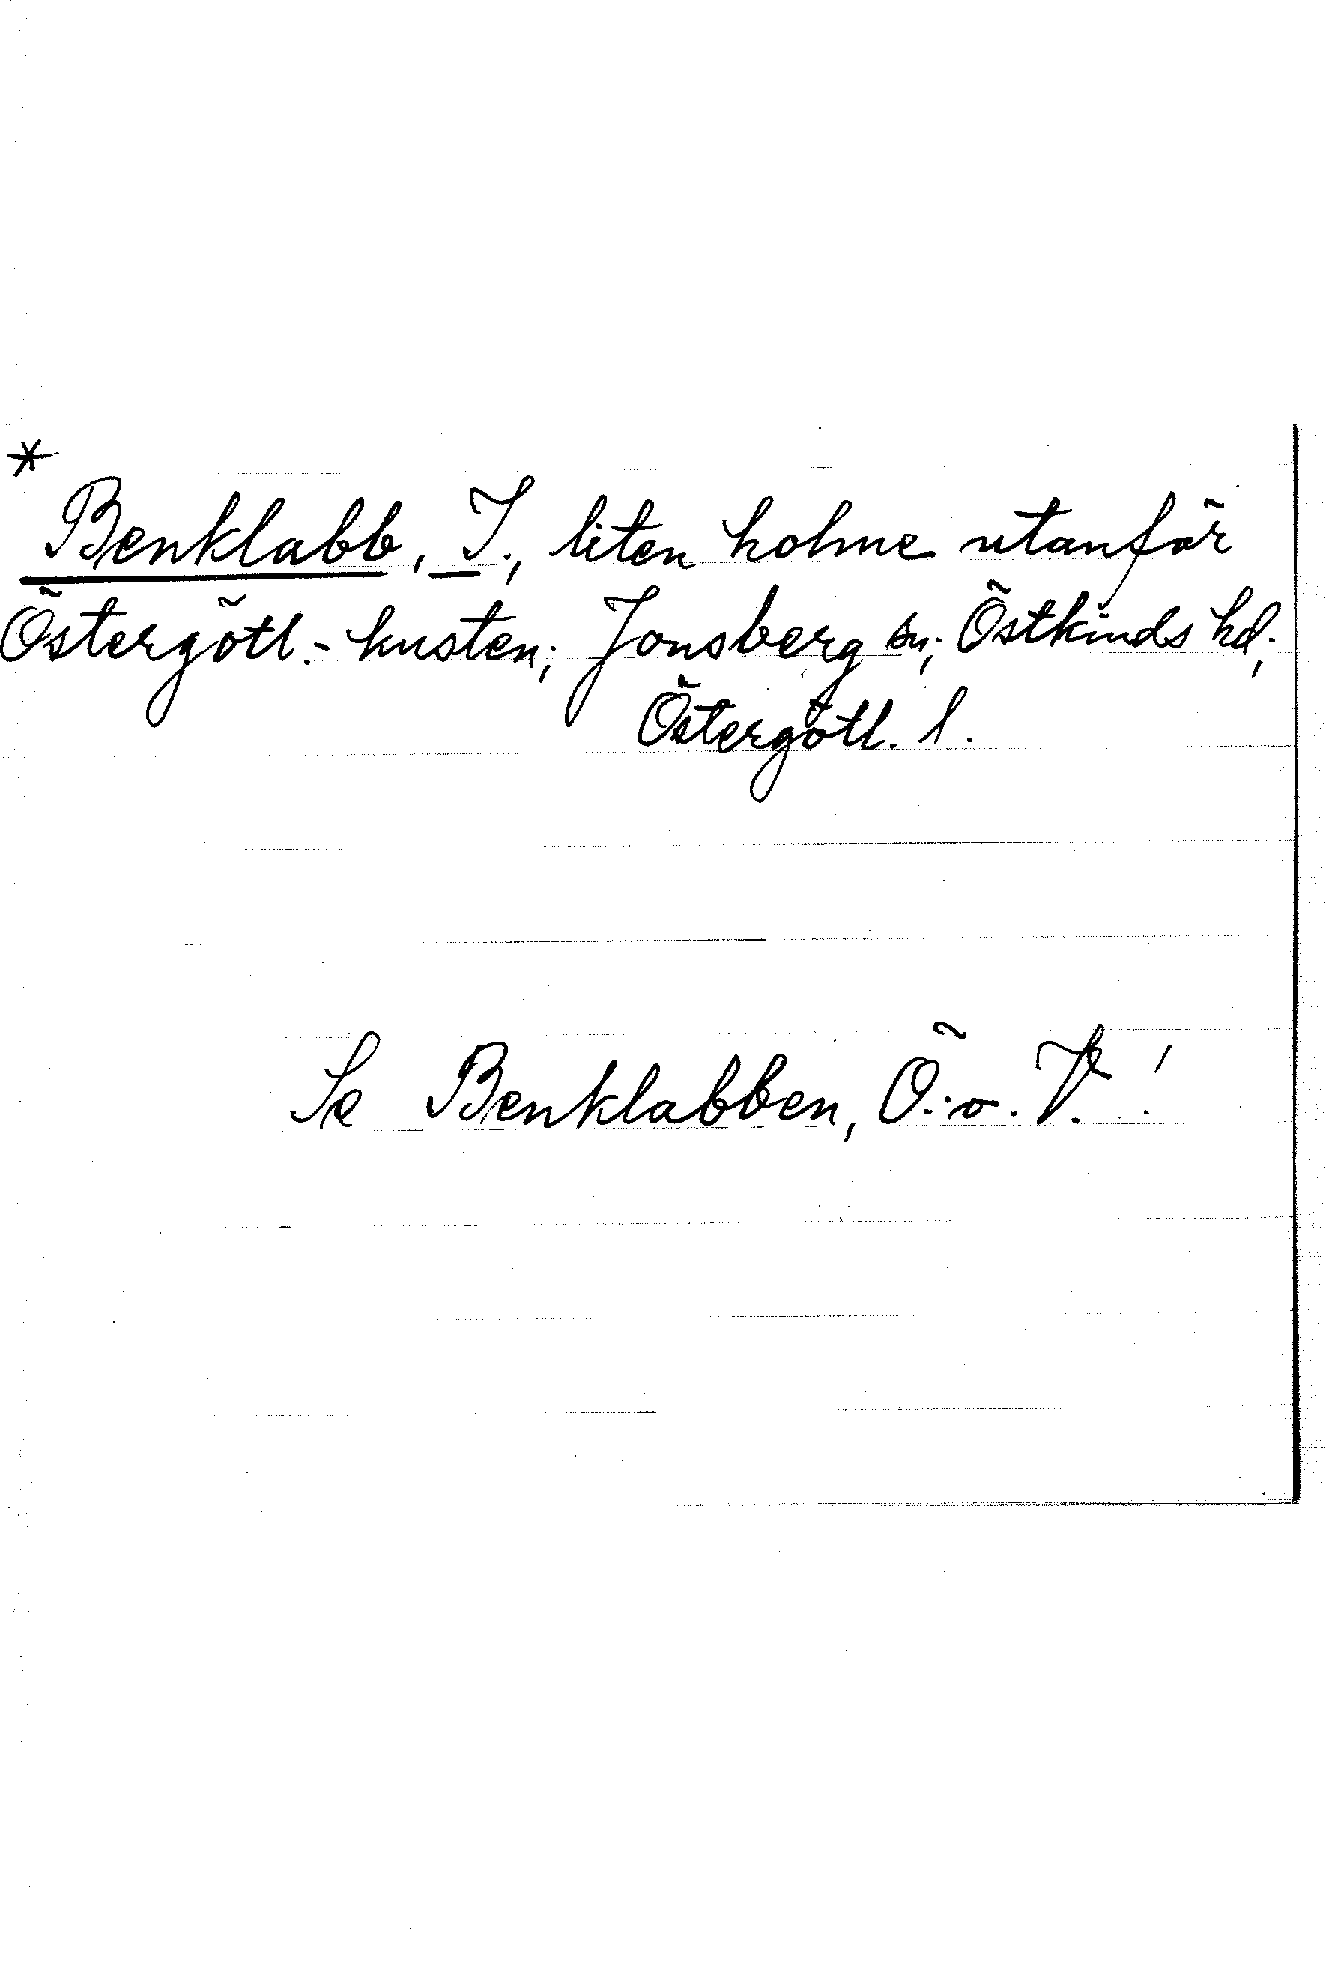 *
Benklabb, I., liten holme utanför
Östergötl.-kusten; Jonsberg sn; Östkinds hd;
Östergötl. l.
Se Benklabben, Ö. o. V.!